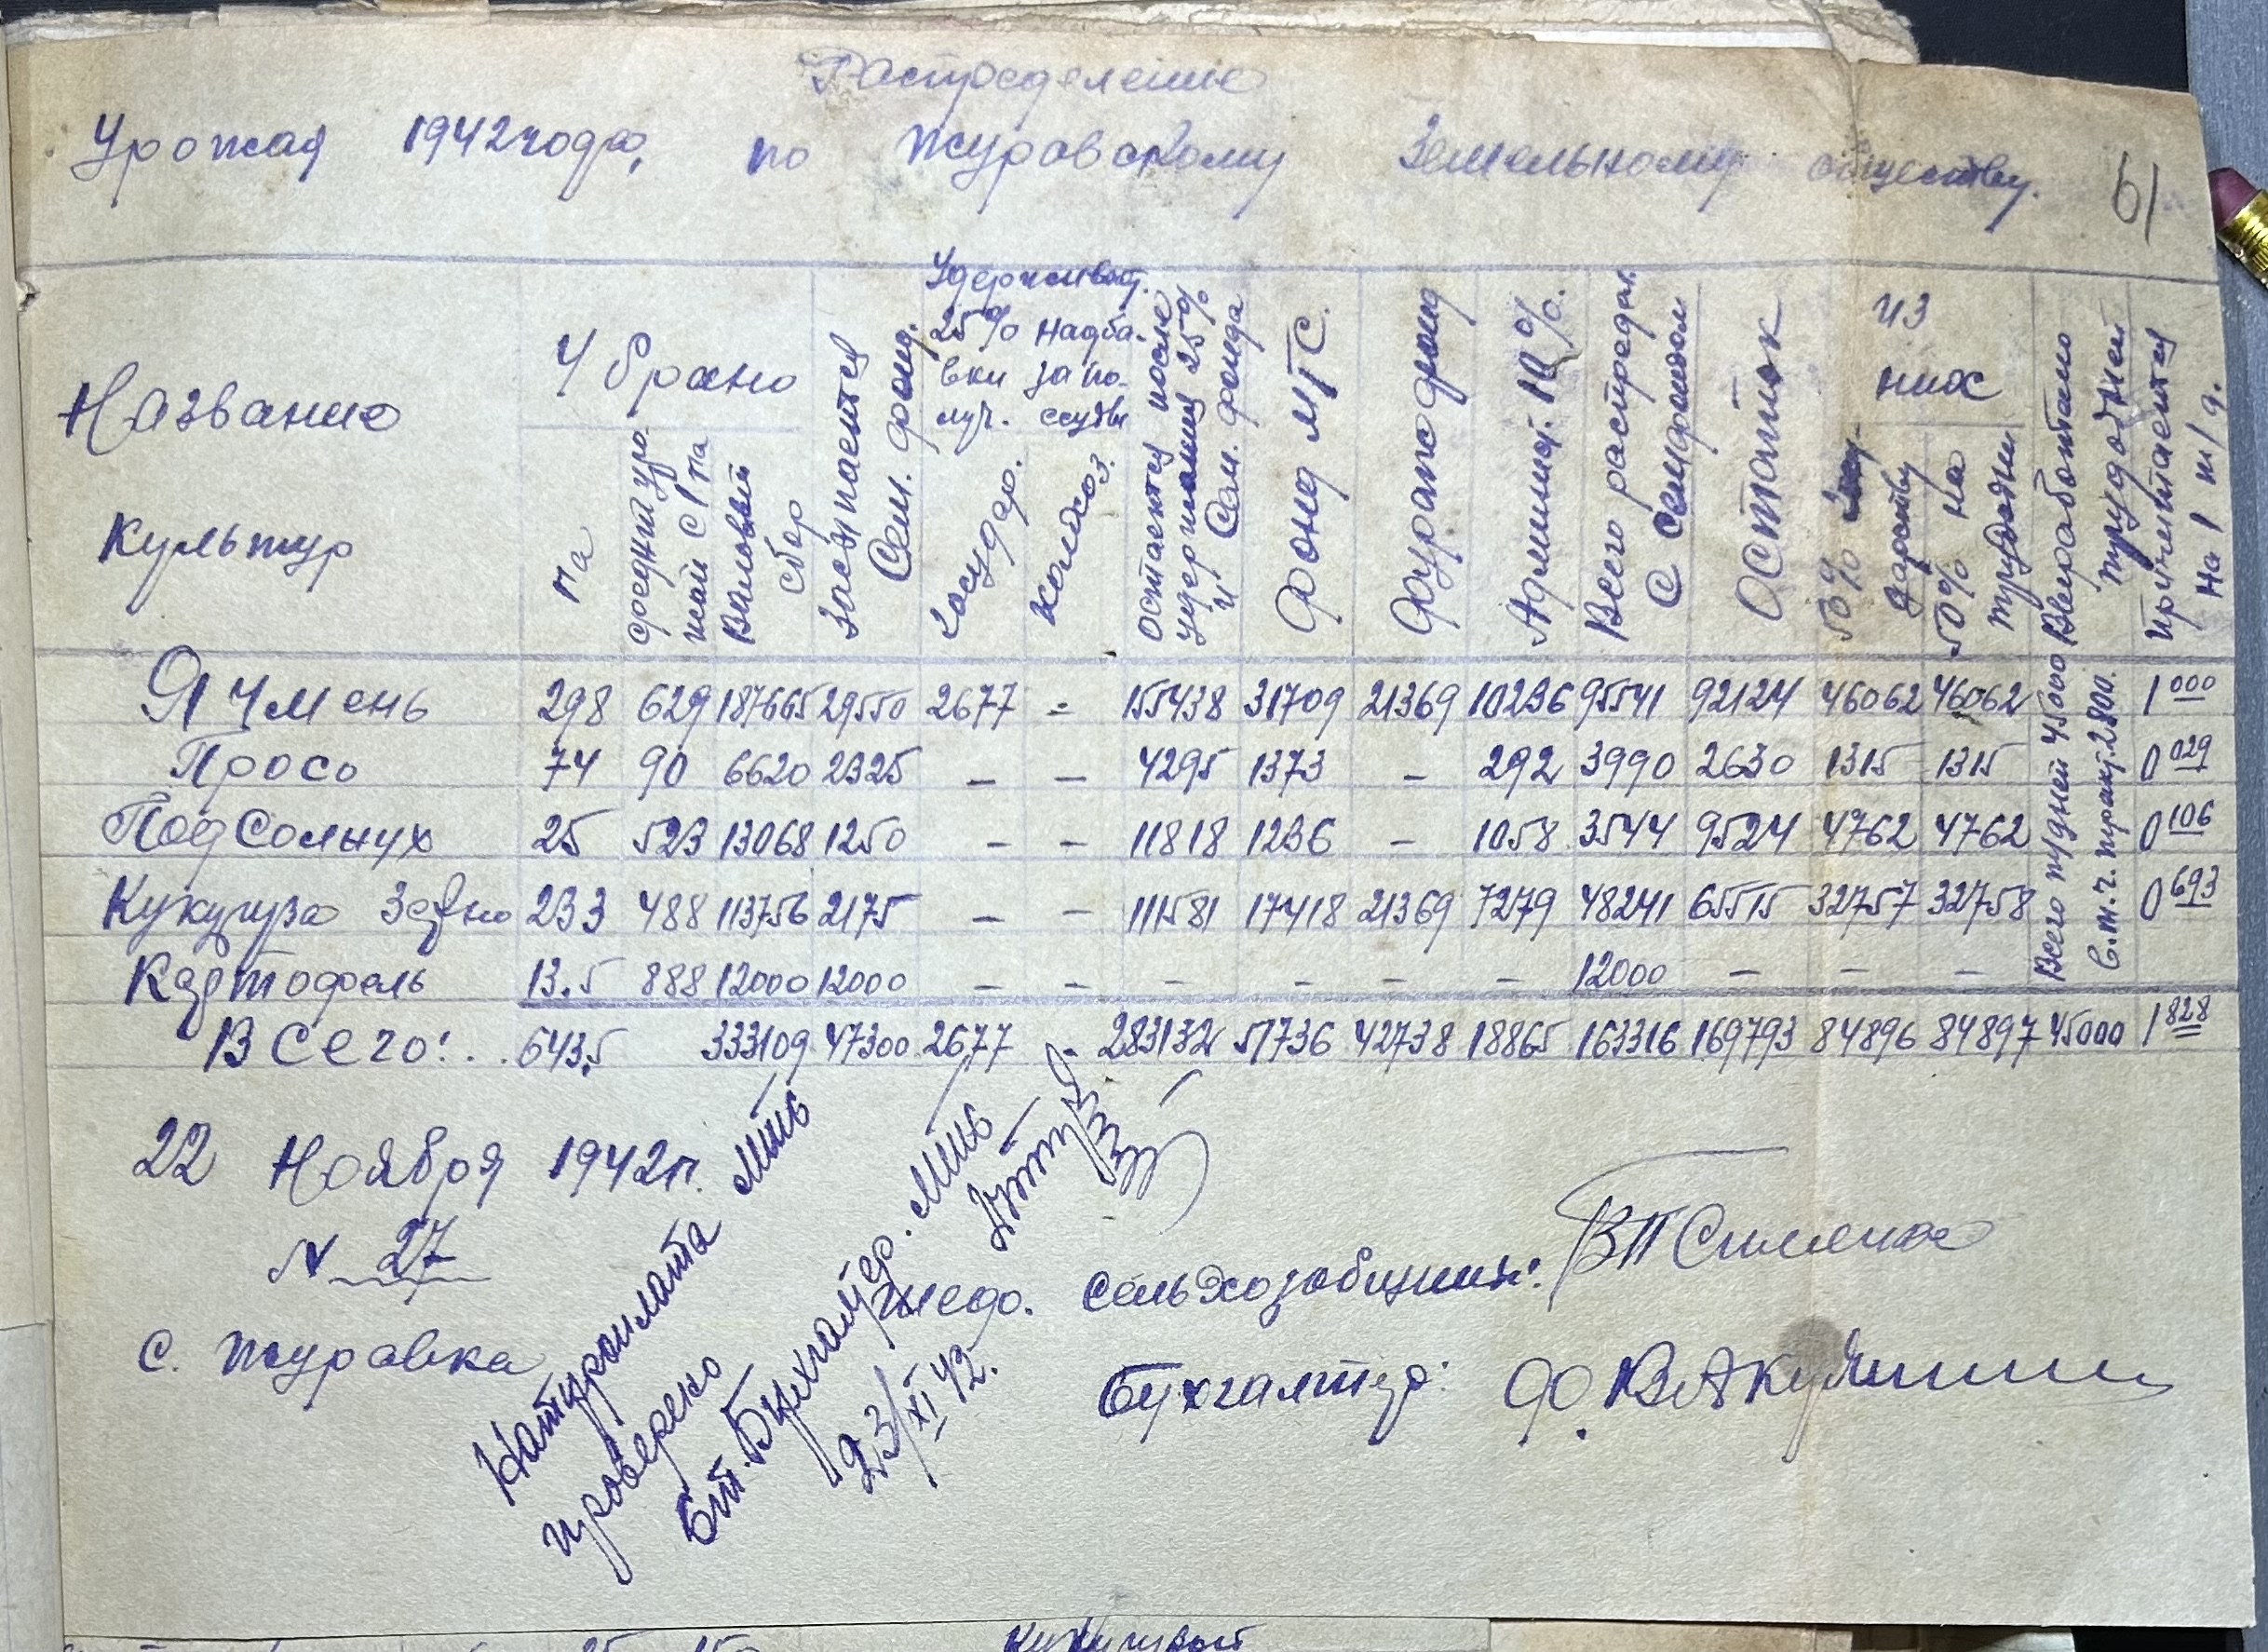 Распределение
Урожая 1942 года, по Журавскому Земельному обществу.
61
Название культур
Убрано
га
средний урожай с 1 га
Валовый сбор
Засыпается Сем. фонд.
Удерживат. 25% надбавки за получ. ссуды
государ.
колхоз.
Остается после удержания 25% и Сем. фонда
Фонд МТС.
Фураж фонд
Админист. 10%.
Всего распредел. с семфондом
Остаток
из них
50% Государству
50% на трудодни
Выработано трудодней
Причитается на 1 т/д.
Ячмень 298 629 187665 29550 2677 - 155438 31709 21369 10236 95541 92124 46062 46062 1 000
Просо 74 90 6620 2325 - - 4295 1373 - 292 3990 2630 1315 1315 0 029
Подсолнух 25 523 13068 1250 - - 11818 1236 - 1058 3544 9524 4762 4762 0 106
Кукуруза Зерно 233 488 113756 2175 - - 111581 17418 21369 7279 48241 65515 32757 32758 0 693
Картофель 13.5 888 12000 12000 - - - - - - 12000 - - -
Всего т/дней 45000
в.т.ч. тракт. 2800.
Всего:.. 643.5 333109 47300 2677 - 283132 51736 42738 18865 163316 169793 84896 84897 45000 1 828
22 Ноября 1942 г.
N 27
с. Журавка
Натуроплата
проверено
Ст. Бухгалтер.
23/XI 42.
сельхозобщины:
Бухгалтер: